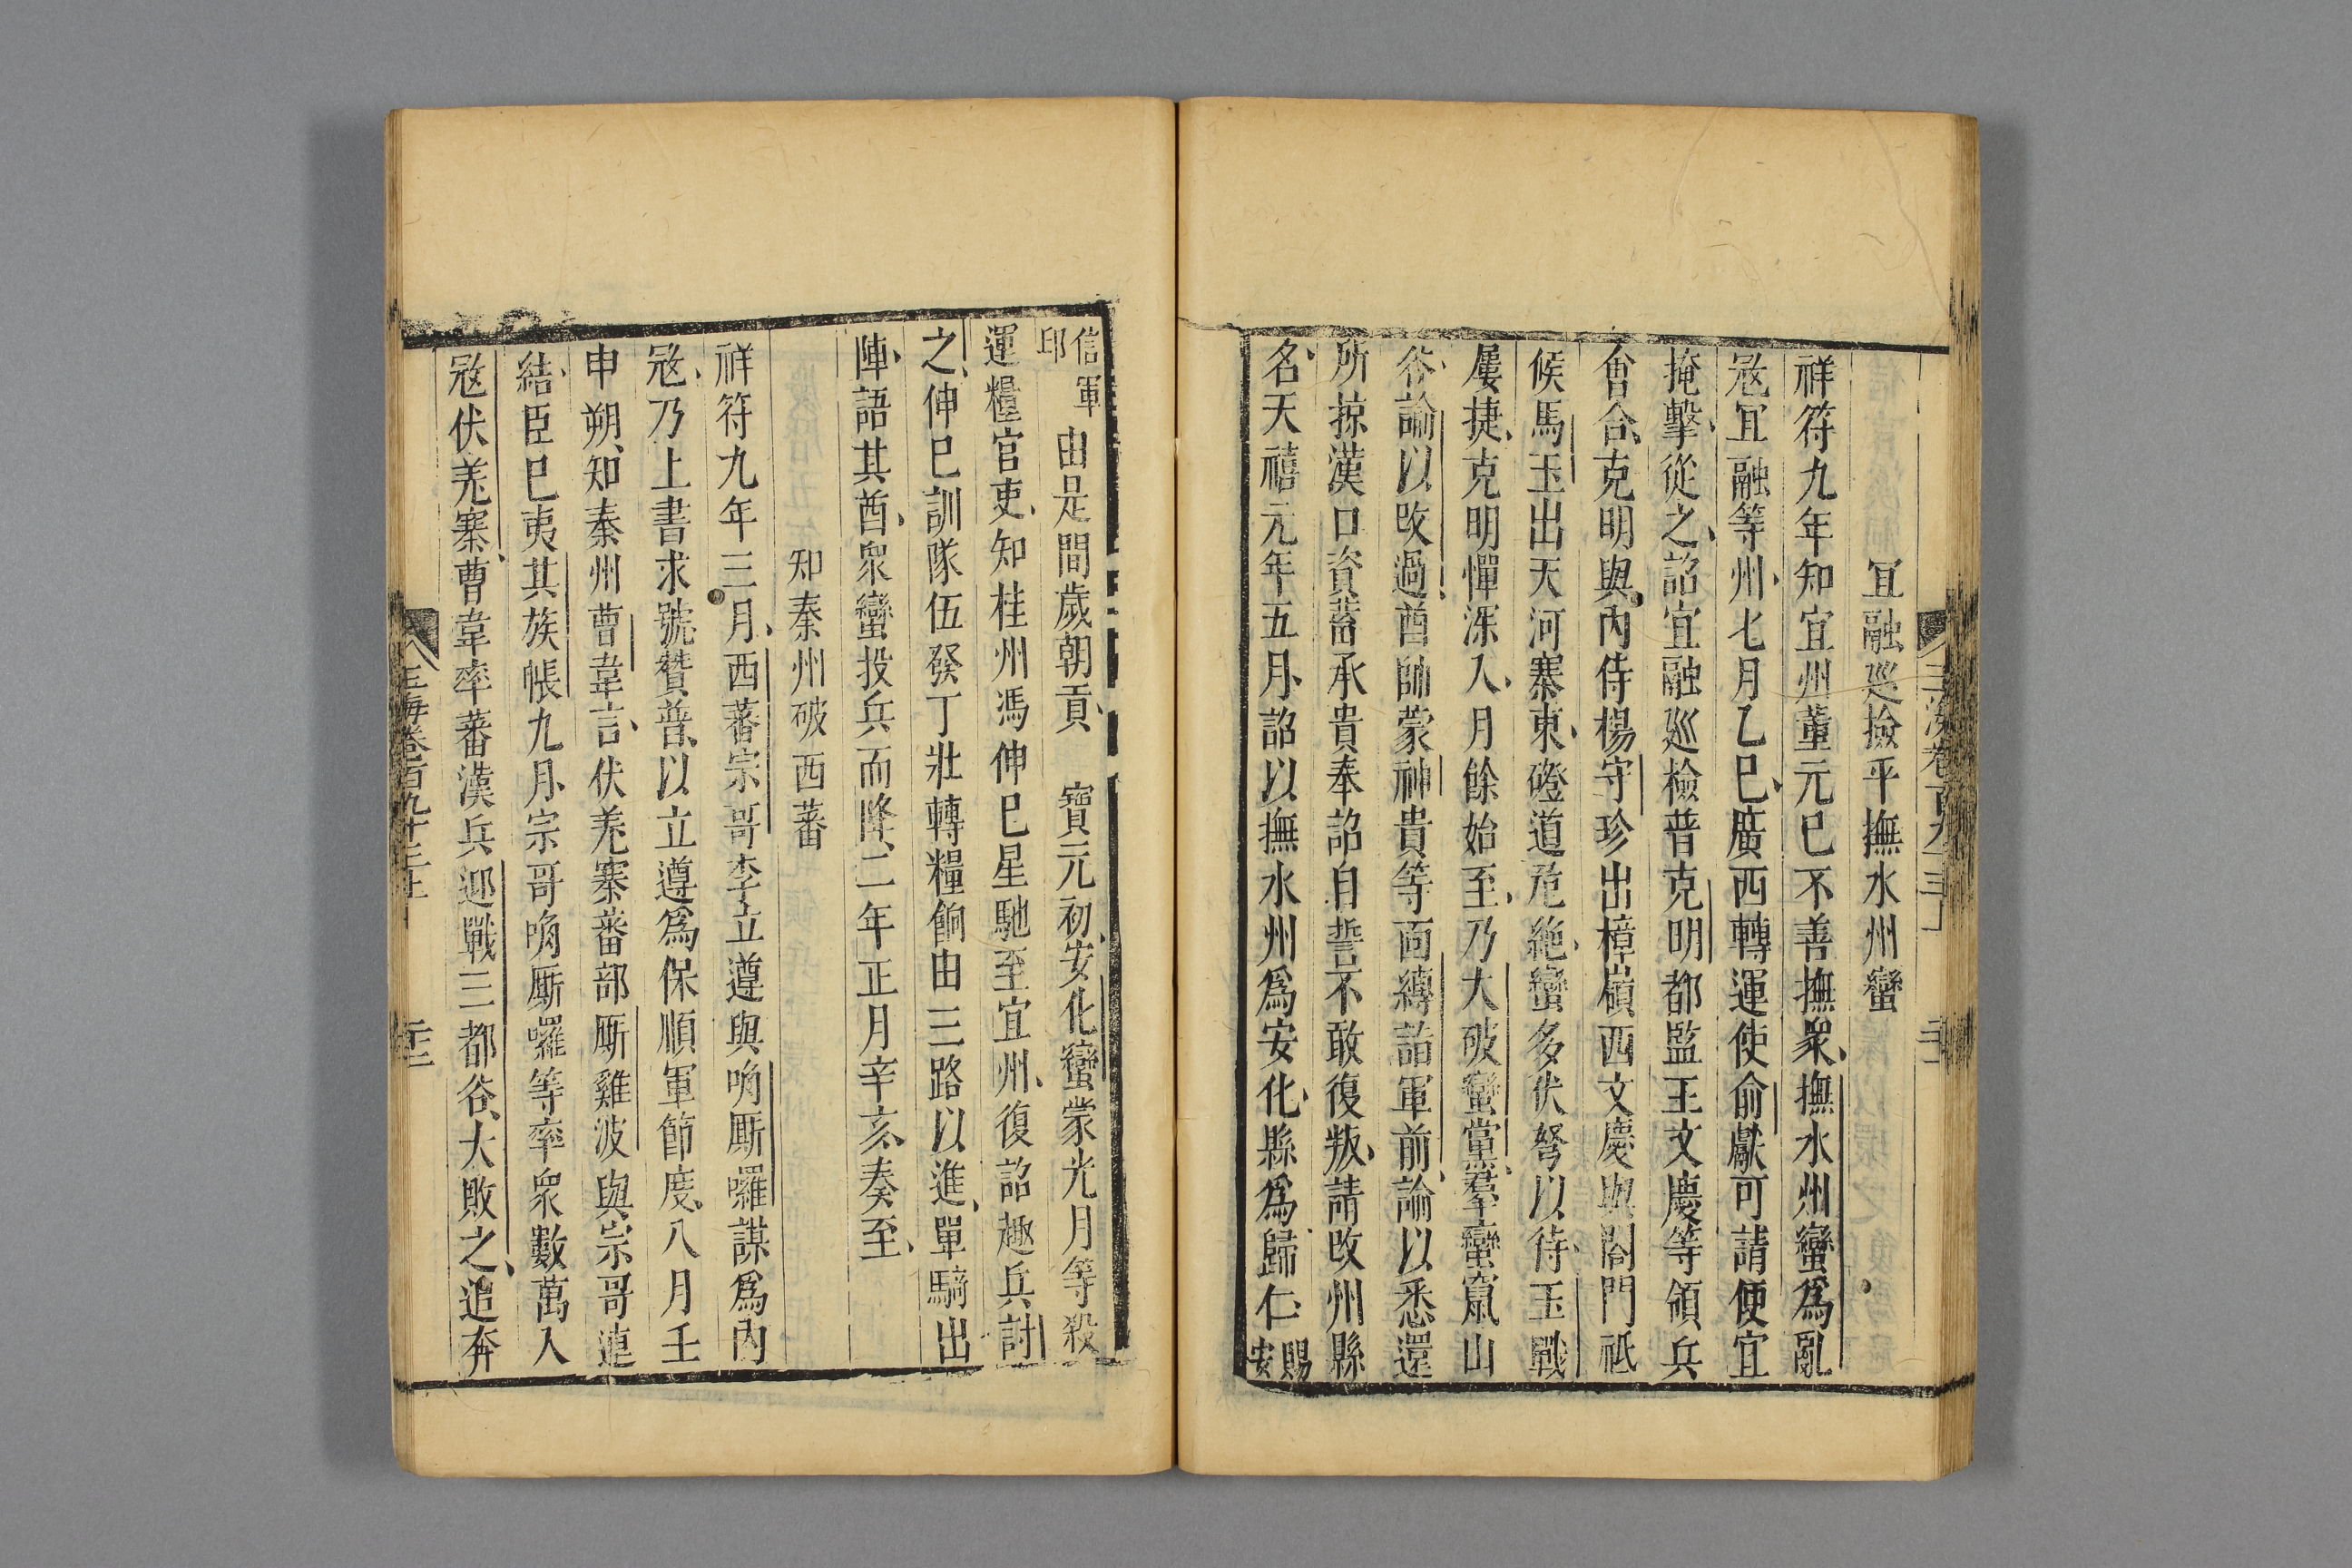 宜融巡撿平撫水州蠻
祥符九年知宜州董元巳不善撫衆撫水州蠻爲亂
宼宜融等州七月乙巳廣西轉運使俞獻可請便宜
掩擊從之詔宜融巡檢昔克明都監王文慶等領兵
會合克明與內侍楊守珍出樟嶺西文慶與閤門祗
候馬玉出天河寨東磴道危絶蠻多伏弩以待玉戰
屢捷克明憚深入月餘始至乃大破蠻黨羣蠻竄山
谷諭以攺過酋帥蒙神貴等面縛詣軍前諭以悉還
所掠漢口資蓄承貴奉詔自誓不敢復叛請攺州縣
名天禧元年五月詔以撫水州爲安化縣爲歸仁賜安
信軍邱由是間歲朝貢 寶元初安化蠻蒙光月等殺
運糧官吏知桂州馮伸巳星馳至宜州復詔趣兵討
之伸巳訓隊伍發丁壯轉糧餉由三路以進單騎出
陣語其酋衆蠻投兵而降二年正月辛亥奏至
知秦州破西蕃
祥符九年三月西蕃宗哥李立遵與唃厮囉謀爲內
宼乃上書求號贊普以立遵爲保順軍節度八月壬
申朔知秦州曹韋言伏羌寨蕃部厮雞波與宗哥連
結臣巳夷其族帳九月宗哥唃厮囉等率衆數萬入
宼伏羌寨曹韋率蕃漢兵迎戰三都谷大敗之追奔
玉海卷百九十三上